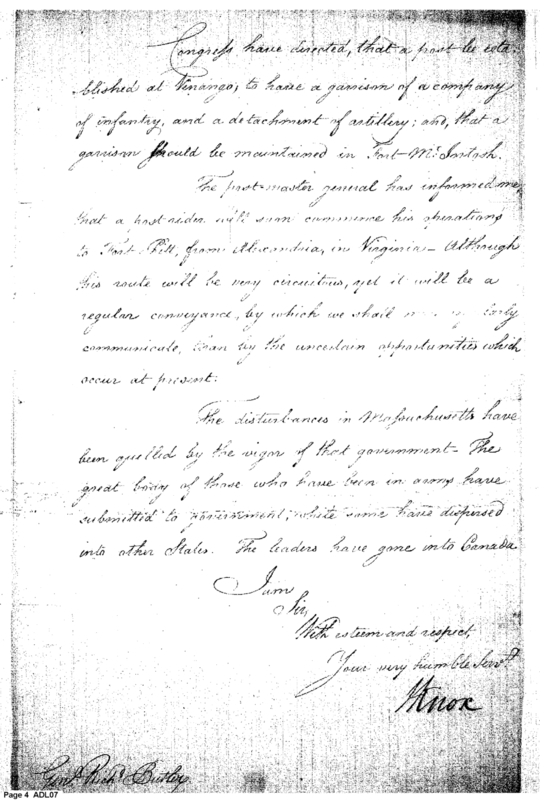 Congress have directed, that a post be esta-
blished at Venango, to have a garrison of a company
of infantry, and a detachment of artillery; and, that a
garrison should be maintained in Fort-McIntosh.
The post-master general has informed me
that a post rider will soon commence his operations
to Fort-Pitt, from Alexandria, in Virginia - Although
his route will be very circuitous, yet it will be a
regular conveyance, by which we shall
communicate, than by the uncertain opportunities which
occur at present.
The disturbances in Massachusetts have
been quelled by the vigor of that government - The
great body of those who have been in arms have
submitted to government; while some have dispersed
into other States. The leaders have gone into Canada
I am
Sir,
With esteem and respect,
Your very humble Servt.
HKnox
Genl. Richd. Butler
Page 4 ADL07